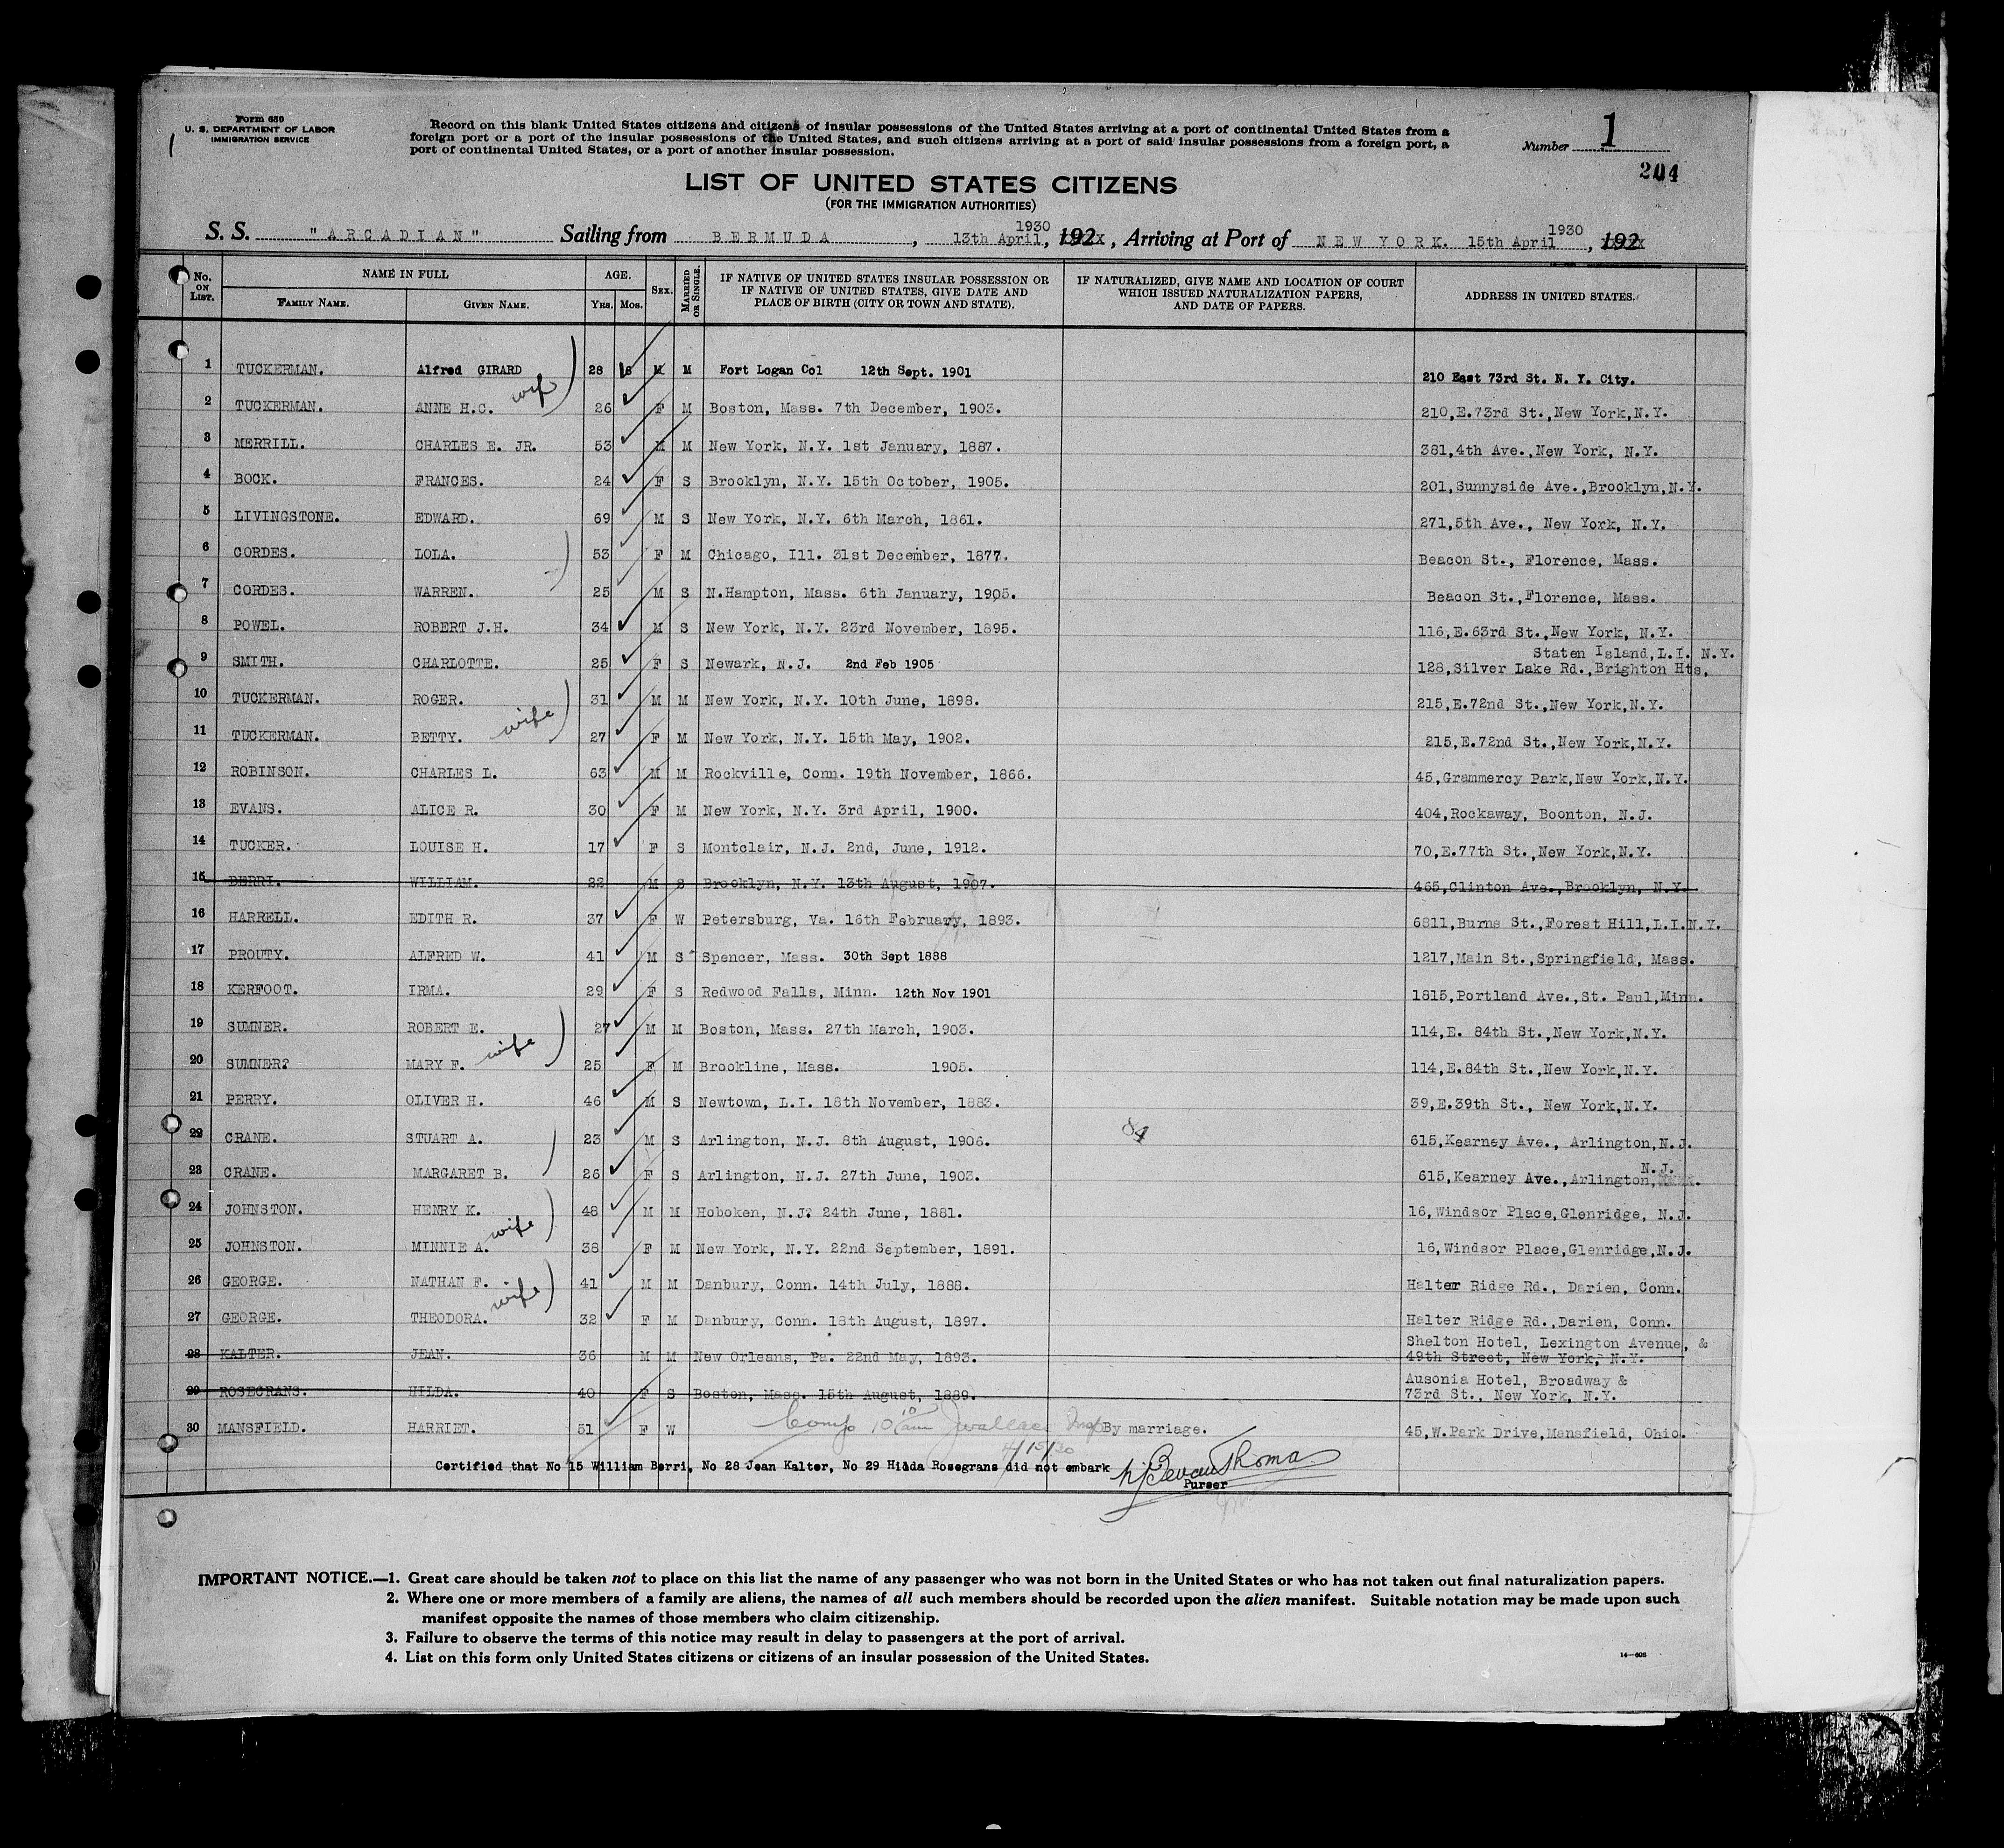 Form 630
U. S. DEPARTMENT OF LABOR
IMMIGRATION SERVICE
Record on this blank United States citizens and citizens of insular possessions of the United States arriving at a port of continental United States from a
foreign port or a port of the insular possessions of the United States, and such citizens arriving at a port of said insular possessions from a foreign port, a
port of continental United States, or a port of another insular possession.
Number 1
204
LIST OF UNITED STATES CITIZENS
(FOR THE IMMIGRATION AUTHORITIES)
S. S. "ARCADIAN" Sailing from BERMUDA, 13th April, 1930 192, Arriving at Port of NEW YORK. 15th April 1930, 192
No. ON LIST. NAME IN FULL FAMILY NAME. GIVEN NAME. AGE. YRS. MOS. SEX. MARRIED OR SINGLE. IF NATIVE OF UNITED STATES INSULAR POSSESSION OR IF NATIVE OF UNITED STATES, GIVE DATE AND PLACE OF BIRTH (CITY OR TOWN AND STATE). IF NATURALIZED, GIVE NAME AND LOCATION OF COURT WHICH ISSUED NATURALIZATION PAPERS, AND DATE OF PAPERS. ADDRESS IN UNITED STATES.
1 TUCKERMAN. Alfred GIRARD 28 M M Fort Logan Col 12th Sept. 1901 210 East 73rd St. N. Y. City.
2 TUCKERMAN. ANNE H.C. wife 26 F M Boston, Mass. 7th December, 1903. 210,E.73rd St.,New York,N.Y.
3 MERRILL. CHARLES E. JR. 53 M M New York, N.Y. 1st January, 1887. 381,4th Ave.,New York, N.Y.
4 BOCK. FRANCES. 24 F S Brooklyn, N.Y. 15th October, 1905. 201,Sunnyside Ave.,Brooklyn,N.Y.
5 LIVINGSTONE. EDWARD. 69 M S New York, N.Y. 6th March, 1861. 271,5th Ave., New York, N.Y.
6 CORDES. LOLA. 53 F M Chicago, Ill. 31st December, 1877. Beacon St., Florence, Mass.
7 CORDES. WARREN. 25 M S N.Hampton, Mass. 6th January, 1905. Beacon St.,Florence, Mass.
8 POWEL. ROBERT J.H. 34 M S New York, N.Y. 23rd November, 1895. 116,E.63rd St.,New York, N.Y.
9 SMITH. CHARLOTTE. 25 F S Newark, N.J. 2nd Feb 1905 Staten Island,L.I. N.Y.
128,Silver Lake Rd.,Brighton Hts,
10 TUCKERMAN. ROGER. 31 M M New York, N.Y. 10th June, 1898. 215,E.72nd St.,New York,N.Y.
11 TUCKERMAN. BETTY. wife 27 F M New York, N.Y. 15th May, 1902. 215,E.72nd St.,New York,N.Y.
12 ROBINSON. CHARLES L. 63 M M Rockville, Conn. 19th November, 1866. 45,Grammercy Park,New York,N.Y.
13 EVANS. ALICE R. 30 F M New York, N.Y. 3rd April, 1900. 404,Rockaway, Boonton, N.J.
14 TUCKER. LOUISE H. 17 F S Montclair, N.J. 2nd, June, 1912. 70,E.77th St.,New York,N.Y.
15 BERRI. WILLIAM. 22 M S Brooklyn, N.Y. 13th August, 1907. 465,Clinton Ave.,Brooklyn, N.Y.
16 HARRELL. EDITH R. 37 F W Petersburg, Va. 16th February, 1893. 6811,Burns St.,Forest Hill,L.I.N.Y.
17 PROUTY. ALFRED W. 41 M S Spencer, Mass. 30th Sept 1888 1217,Main St.,Springfield, Mass.
18 KERFOOT. IRMA. 29 F S Redwood Falls, Minn. 12th Nov 1901 1815,Portland Ave.,St. Paul,Minn.
19 SUMNER. ROBERT E. 27 M M Boston, Mass. 27th March, 1903. 114,E. 84th St.,New York,N.Y.
20 SUMNER? MARY F. wife 25 F M Brookline, Mass. 1905. 114,E.84th St.,New York,N.Y.
21 PERRY. OLIVER H. 46 M S Newtown, L.I. 18th November, 1883. 39,E.39th St., New York,N.Y.
22 CRANE. STUART A. 23 M S Arlington, N.J. 8th August, 1906. 84 615,Kearney Ave., Arlington,N.J.
23 CRANE. MARGARET B. 26 F S Arlington, N.J. 27th June, 1903. 615,Kearney Ave.,Arlington, N.J.
24 JOHNSTON. HENRY K. 48 M M Hoboken, N.J? 24th June, 1881. 16,Windsor Place,Glenridge, N.J.
25 JOHNSTON. MINNIE A. wife 38 F M New York, N.Y. 22nd September, 1891. 16,Windsor Place,Glenridge,N.J.
26 GEORGE. NATHAN F. 41 M M Danbury, Conn. 14th July, 1888. Halter Ridge Rd., Darien, Conn.
27 GEORGE. THEODORA. wife 32 F M Danbury, Conn. 18th August, 1897. Halter Ridge Rd.,Darien, Conn.
28 KALTER. JEAN. 36 M M New Orleans, Pa. 22nd May, 1893. Shelton Hotel, Lexington Avenue, &
49th Street, New York, N.Y.
29 ROSEGRANS. HILDA. 40 F S Boston, Mass. 15th August, 1889. Ausonia Hotel, Broadway &
73rd St., New York, N.Y.
30 MANSFIELD. HARRIET. 51 F W Comp 10 am J Wallace Insp By marriage. 45,W.Park Drive,Mansfield, Ohio.
4/15/30
Certified that No 15 William Berri, No 28 Jean Kalter, No 29 Hilda Rosegrans did not embark
Purser
IMPORTANT NOTICE.—1. Great care should be taken not to place on this list the name of any passenger who was not born in the United States or who has not taken out final naturalization papers.
2. Where one or more members of a family are aliens, the names of all such members should be recorded upon the alien manifest. Suitable notation may be made upon such
manifest opposite the names of those members who claim citizenship.
3. Failure to observe the terms of this notice may result in delay to passengers at the port of arrival.
4. List on this form only United States citizens or citizens of an insular possession of the United States.